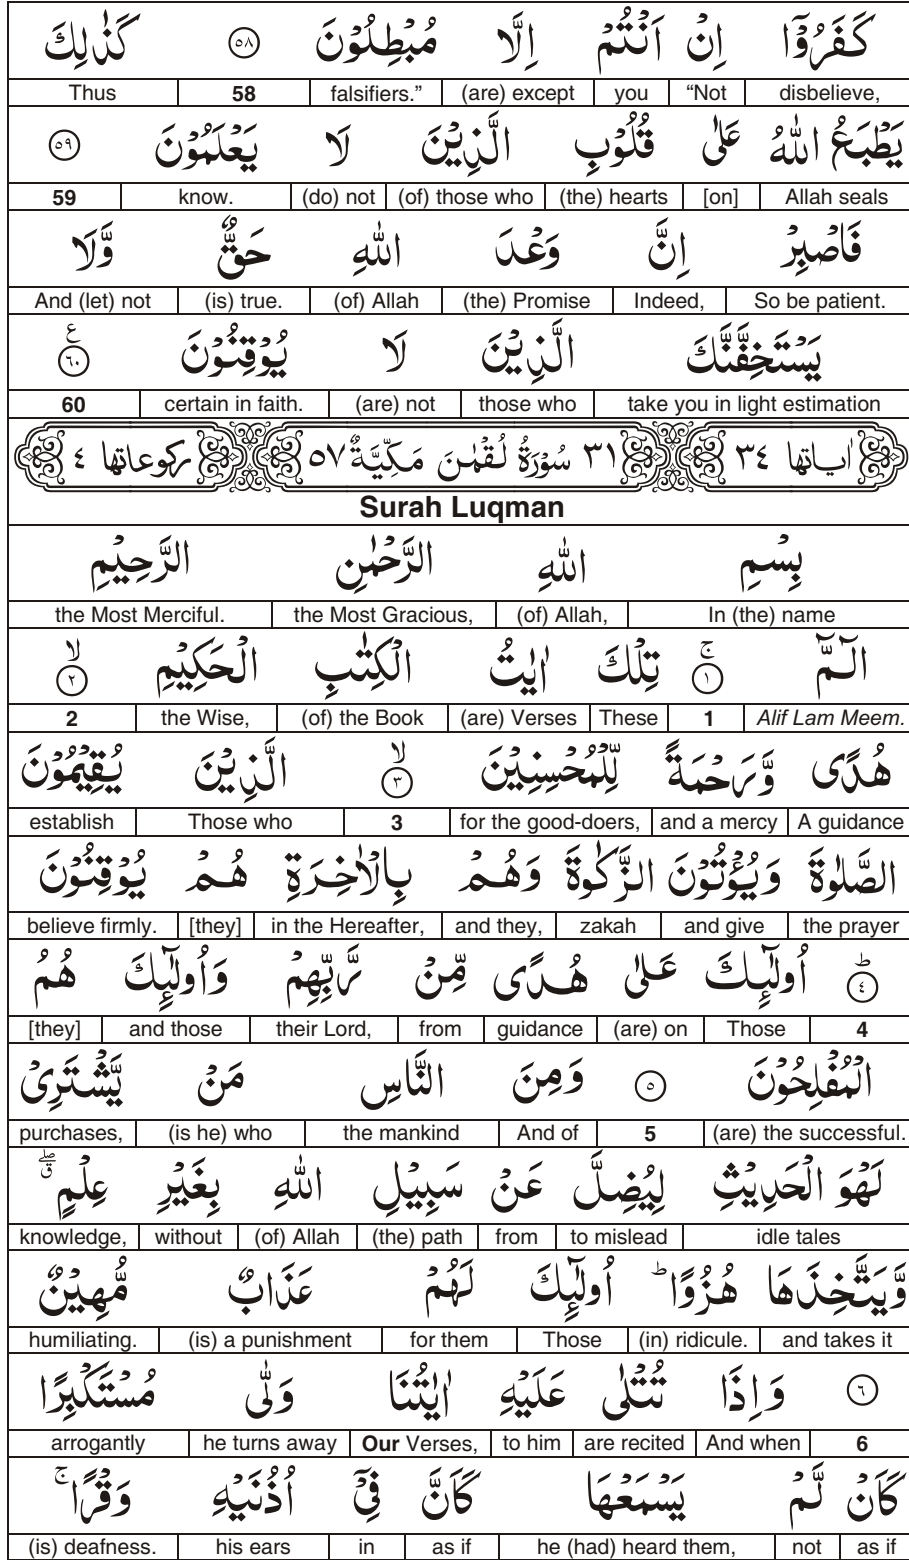 كَفَرُوْۤا اِنْ اَنْتُمْ اِلَّا مُبْطِلُوْنَ ٥٨ كَذٰلِكَ
disbelieve, “Not you (are) except falsifiers.” 58 Thus
يَطْبَعُ اللّٰهُ عَلٰى قُلُوْبِ الَّذِيْنَ لَا يَعْلَمُوْنَ ٥٩
Allah seals [on] (the) hearts (of) those who (do) not know. 59
فَاصْبِرْ اِنَّ وَعْدَ اللّٰهِ حَقٌّ وَّلَا
So be patient. Indeed, (the) Promise (of) Allah (is) true. And (let) not
يَسْتَخِفَّنَّكَ الَّذِيْنَ لَا يُوْقِنُوْنَ ٦٠ ع
take you in light estimation those who (are) not certain in faith. 60
اٰياتها ٣٤ ٣١ سُوْرَةُ لُقْمٰنَ مَكِّيَّةٌ ٥٧ ركوعاتها ٤
Surah Luqman
بِسْمِ اللّٰهِ الرَّحْمٰنِ الرَّحِيْمِ
In (the) name (of) Allah, the Most Gracious, the Most Merciful.
الٓمّٓ ١ ج تِلْكَ اٰيٰتُ الْكِتٰبِ الْحَكِيْمِ ٢ لا
Alif Lam Meem. 1 These (are) Verses (of) the Book the Wise, 2
هُدًى وَّرَحْمَةً لِّلْمُحْسِنِيْنَ ٣ لا الَّذِيْنَ يُقِيْمُوْنَ
A guidance and a mercy for the good-doers, 3 Those who establish
الصَّلٰوةَ وَيُؤْتُوْنَ الزَّكٰوةَ وَهُمْ بِالْاٰخِرَةِ هُمْ يُوْقِنُوْنَ
the prayer and give zakah and they, in the Hereafter, [they] believe firmly.
٤ ط اُولٰٓئِكَ عَلٰى هُدًى مِّنْ رَّبِّهِمْ وَاُولٰٓئِكَ هُمُ
4 Those (are) on guidance from their Lord, and those [they]
الْمُفْلِحُوْنَ ٥ وَمِنَ النَّاسِ مَنْ يَّشْتَرِيْ
(are) the successful. 5 And of the mankind (is he) who purchases,
لَهْوَ الْحَدِيْثِ لِيُضِلَّ عَنْ سَبِيْلِ اللّٰهِ بِغَيْرِ عِلْمٍ ۖق
idle tales to mislead from (the) path (of) Allah without knowledge,
وَّيَتَّخِذَهَا هُزُوًا ؕ اُولٰٓئِكَ لَهُمْ عَذَابٌ مُّهِيْنٌ
and takes it (in) ridicule. Those for them (is) a punishment humiliating.
٦ وَاِذَا تُتْلٰى عَلَيْهِ اٰيٰتُنَا وَلّٰى مُسْتَكْبِرًا
6 And when are recited to him Our Verses, he turns away arrogantly
كَاَنْ لَّمْ يَسْمَعْهَا كَاَنَّ فِيْۤ اُذُنَيْهِ وَقْرًا ۚ
as if not he (had) heard them, as if in his ears (is) deafness.